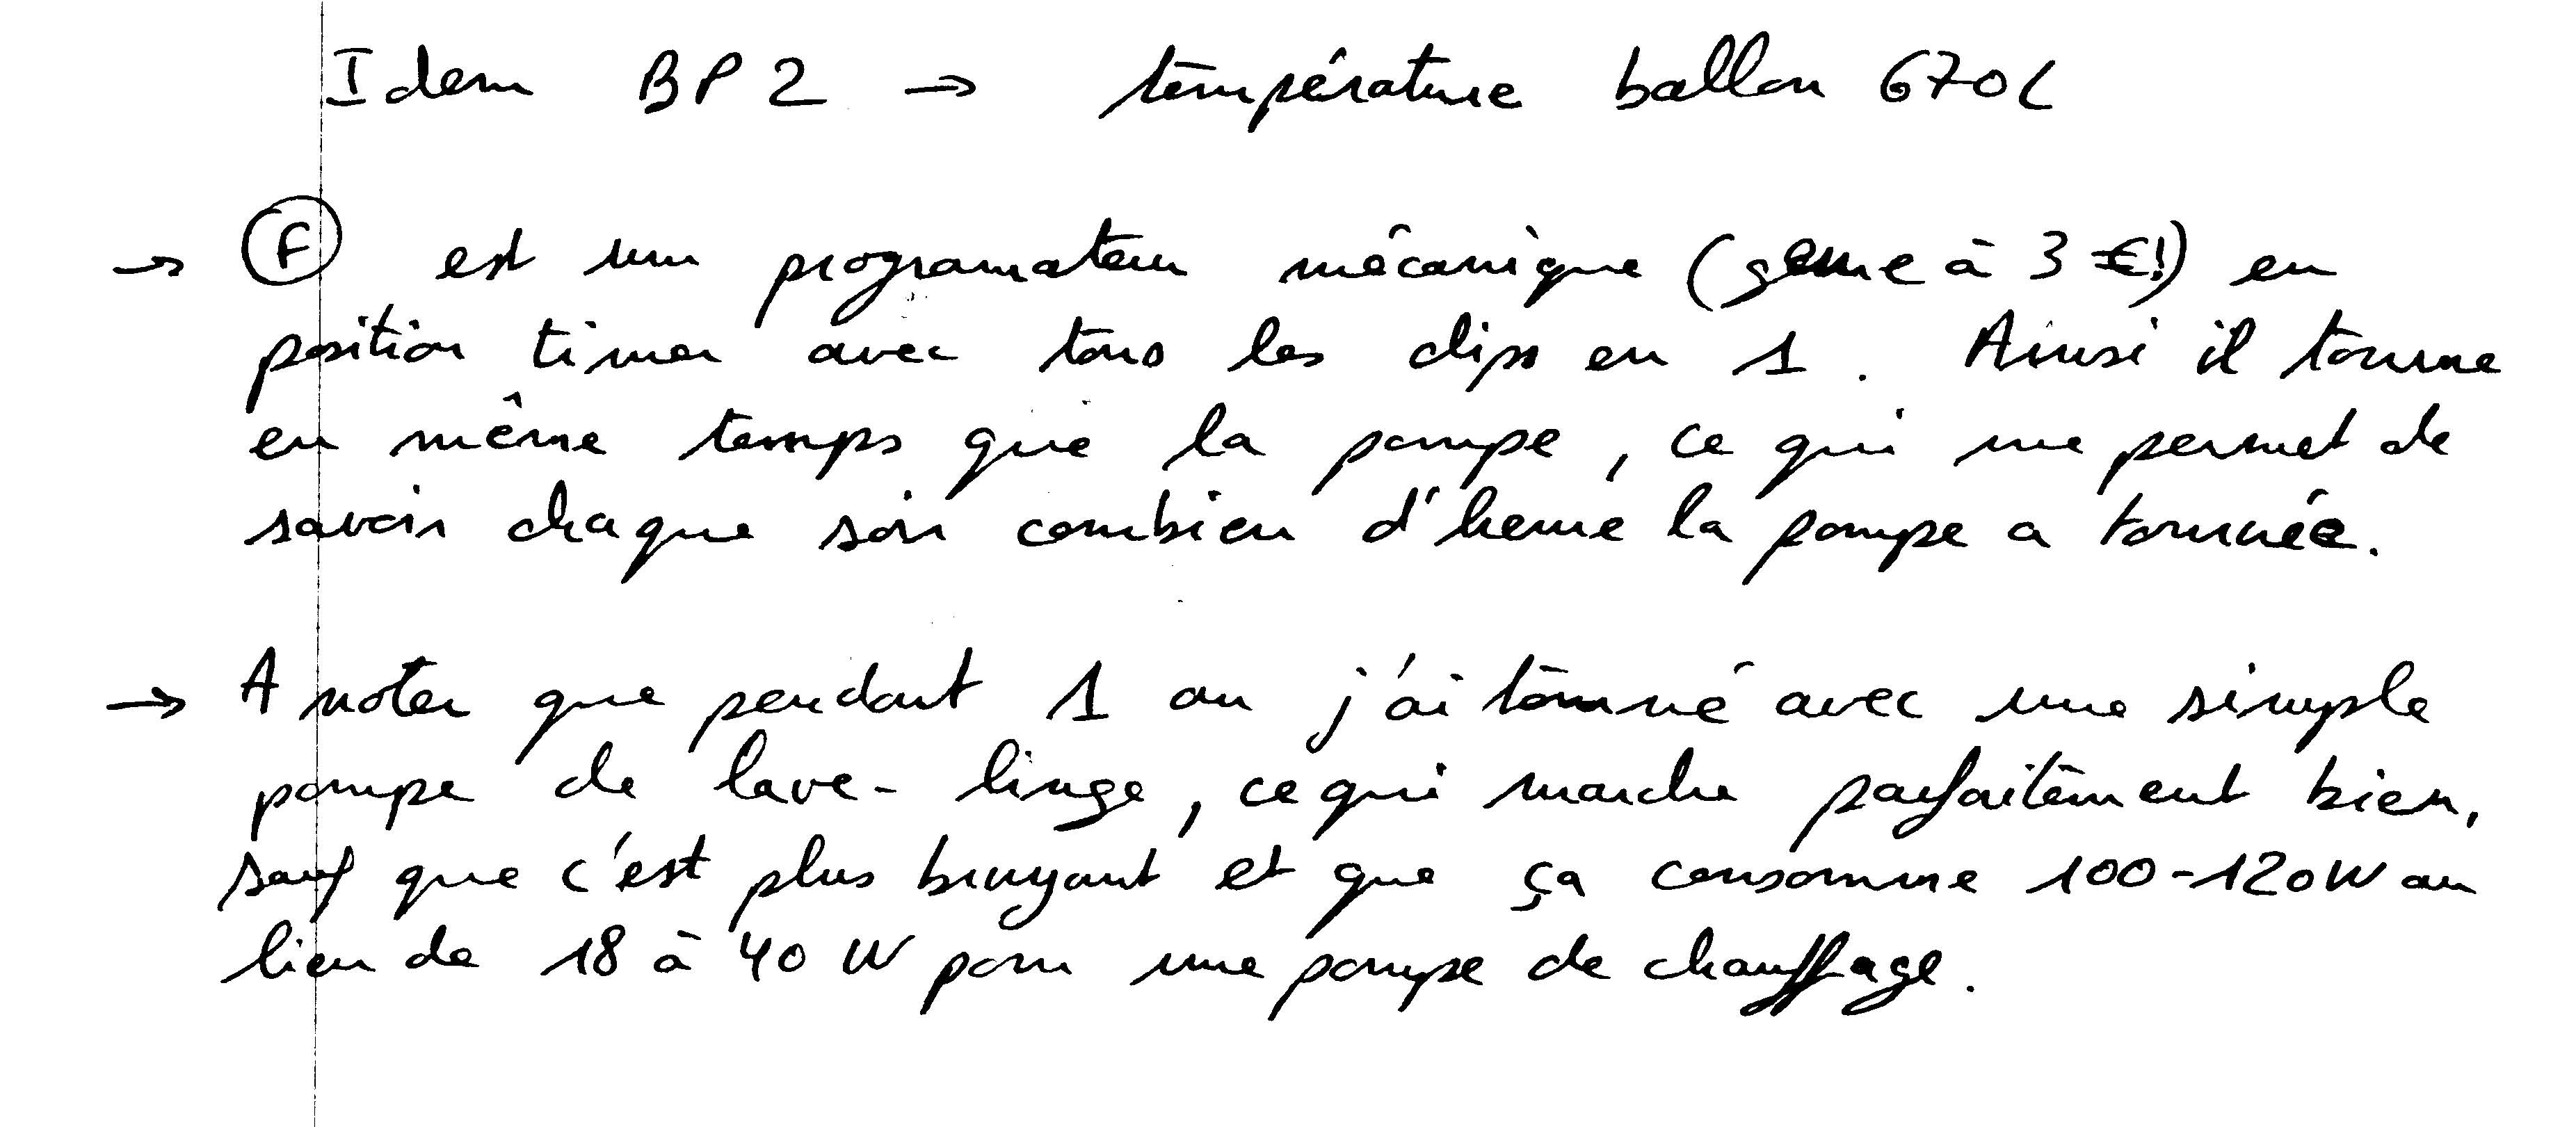 Idem BP2 → température ballon 670L
→ (F) est un programateur mécanique (genre à 3 €!) en
position timer avec tous les clips en 1. Ainsi il tourne
en même temps que la pompe, ce qui me permet de
savoir chaque soir combien d'heure la pompe a tournée.
→ A noter que pendant 1 an j'ai tourné avec une simple
pompe de lave-linge, ce qui marche parfaitement bien,
sauf que c'est plus bruyant et que ça consomme 100-120W au
lieu de 18 à 40 W pour une pompe de chauffage.